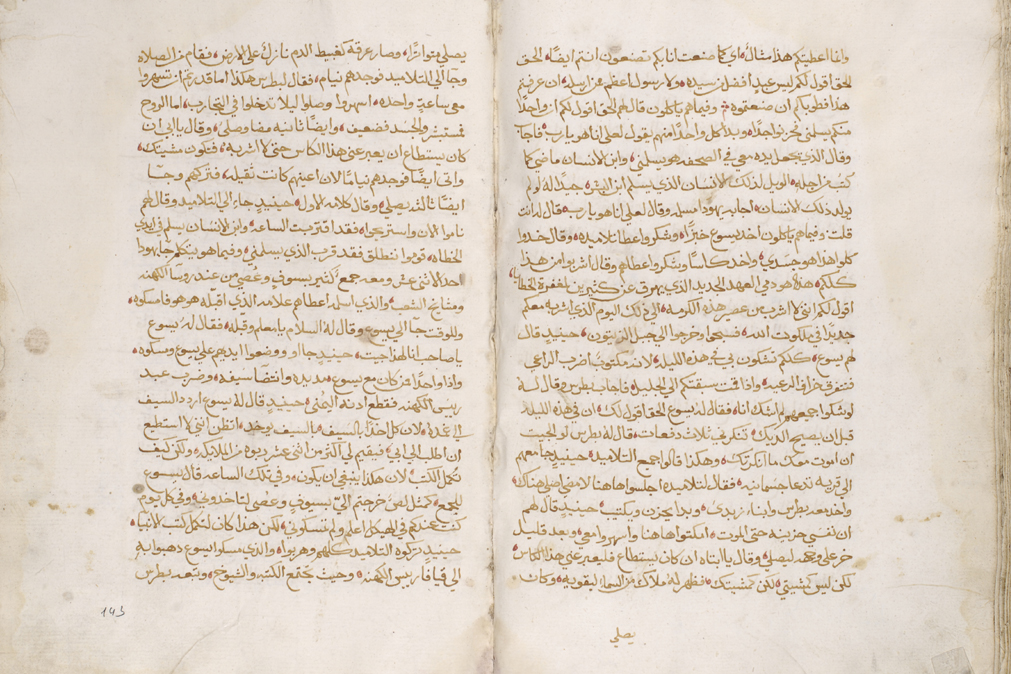 وانما اعطيتكم هذا مثالا اي كما صنعت انا بكم تصنعون انتم ايضا الحق
الحق اقول لكم ليس عبد افضل من سيده ولا رسول اعظم ممن ارسله ان عرفتم
هذا فطوباكم ان صنعتموه وفيما هم ياكلون قال لهم الحق اقول لكم ان واحدا
منكم يسلمني فحزنوا جدا وبدا كل واحد منهم يقول لعلي انا هو يا رب فاجاب
وقال الذي يجعل يده معي في الصحفه هو يسلمني وابن الانسان ماضي كما
كتب من اجله الويل لذلك الانسان الذي يسلم ابن البشر جيدا له لو لم
يولد ذلك الانسان اجابه يهودا مسلمه وقال لعلي انا هو يا رب قال له انت
قلت وفيما هم ياكلون اخد يسوع خبزا وشكر واعطا تلاميده وقال خدوا
كلوا هذا هو جسدي واخد كاسا وشكر واعطاهم وقال اشربوا من هذا
كلكم هذا هو دمي العهد الجديد الذي يهرق عن كثيرين لمغفرة الخطايا
اقول لكم انني لا اشرب من عصير هذه الكرمه الى ذلك اليوم الذي اشربه معكم
جديدا في ملكوت الله فسبحوا وخرجوا الى جبل الزيتون حينيد قال
لهم يسوع كلكم تشكون بي في هذه الليله لانه مكتوب اضرب الراعي
فتتفرق خراف الرعيه واذا قمت سبقتكم الى الجليل فاجاب بطرس وقال له
لو شكوا جميعهم لم اشك انا فقال له يسوع الحق اقول لك ان في هذه الليله
قبل ان يصيح الديك تنكرني ثلاث دفعات قال له بطرس لو الجيت
ان اموت معك ما انكرتك وهكذا قالوا جميع التلاميد حينيد جا معهم
الى قريه تدعا جسمانيه فقال لتلاميده اجلسوا هاهنا لامضي اصلي هناك
واخد معه بطرس وابنا زبدي وبدا يحزن ويكتيب حينيد قال لهم
ان نفسي حزينه حتى الموت امكثوا هاهنا واسهروا معي وبعد قليل
خر على وجهه ليصلي وقال يا ابتاه ان كان يستطاع فليعبر عني هذا الكاس
لكن ليس كمشيتي لكن كمشيتك فظهر له ملاك من السماء ليقويه وكان
يصلي
يصلي متواترا وصار عرقه كغبيط الدم نازل على الارض فقام من الصلاه
وجا الى التلاميد فوجدهم نيام فقال لبطرس هكذا اما قدرتم ان تسهروا
معي ساعة واحده اسهروا وصلوا ليلا تدخلوا في التجارب اما الروح
فمستبشر والجسد فضعيف وايضا ثانيه مضا وصلى وقال يا ابي ان
كان يستطاع ان يعبر عني هذا الكاس حتى لا اشربه فتكون مشيتك
واتى ايضا فوجدهم نياما لان اعينهم كانت ثقيله فتركهم وجا
ايضا ثالثه يصلي وقال كلامه الاول حينيد جاء الى التلاميد وقال لهم
ناموا الان واستريحوا فقد اقتربت الساعه وابن الانسان يسلم في ايدي
الخطاه قوموا ننطلق فقد قرب الذي يسلمني وفيما هو يتكلم جا يهودا
احد الاثني عشر ومعه جمع كثير بسيوف وعصي من عند روسا الكهنه
ومشايخ الشعب والذي اسلمه اعطاهم علامه الذي اقبله هو هو فامسكوه
وللوقت جا الى يسوع وقال له السلام يا معلم وقبله فقال له يسوع
يا صاحب الهذا جيت حينيد جااو ووضعوا ايديهم على يسوع ومسكوه
واذا واحدا من كان مع يسوع مد يده وانتضا سيفه وضرب عبد
رييس الكهنه فقطع ادنه اليمنى حينيد قال له يسوع اردد السيف
الى غمده لان كل من اخذ بالسيف بالسيف يوخد اتظن انني لا استطيع
ان اطلب الى ابي فيقيم لي اكثر من اثني عشر ربوه من الملايكه ولكن كيف
تكمل الكتب لان هكذا ينبغي ان يكون وفي تلك الساعه قال يسوع
للجمع كمثل لص خرجتم الي بسيوف وعصي لتاخدوني وفي كل يوم
كنت عندكم في الهيكل اعلم ولم تمسكوني لكن هذا كان لتكمل كتب الانبياء
حينيد تركوه التلاميد كلهم وهربوا والذي مسكوا يسوع دهبوا به
الى قيافا رييس الكهنه وحيث تجتمع الكتبه والشيوخ وتبعه بطرس